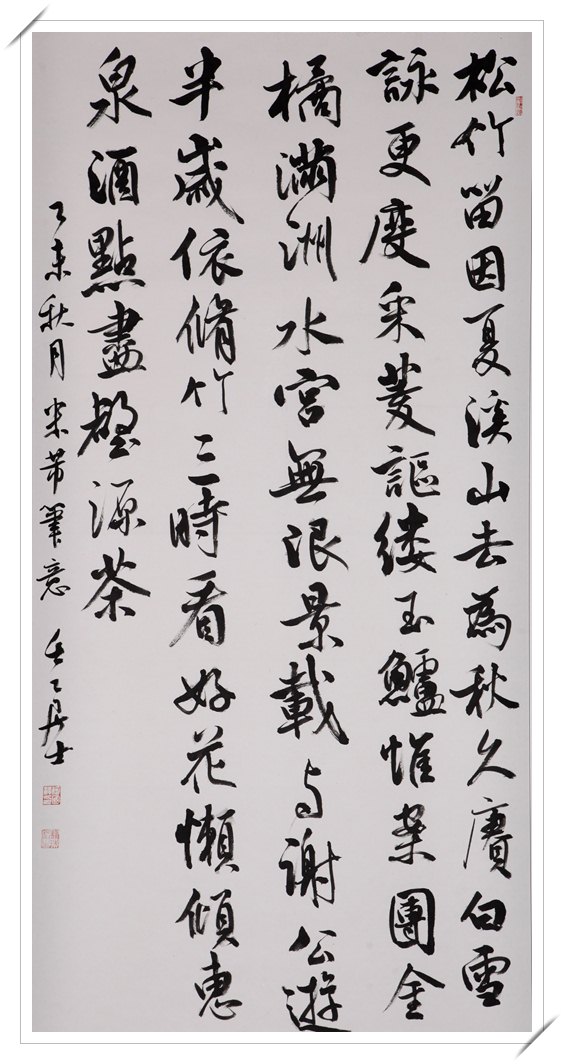 松竹留因夏溪山去為秋久賡白雪
詠更度采菱謳縷玉鱸堆案團金
橘滿洲水宮無限景載与謝公遊
半歲依脩竹三時看好花懶傾惠
泉酒點盡壑源茶
乙未秋月米芾筆意 居士